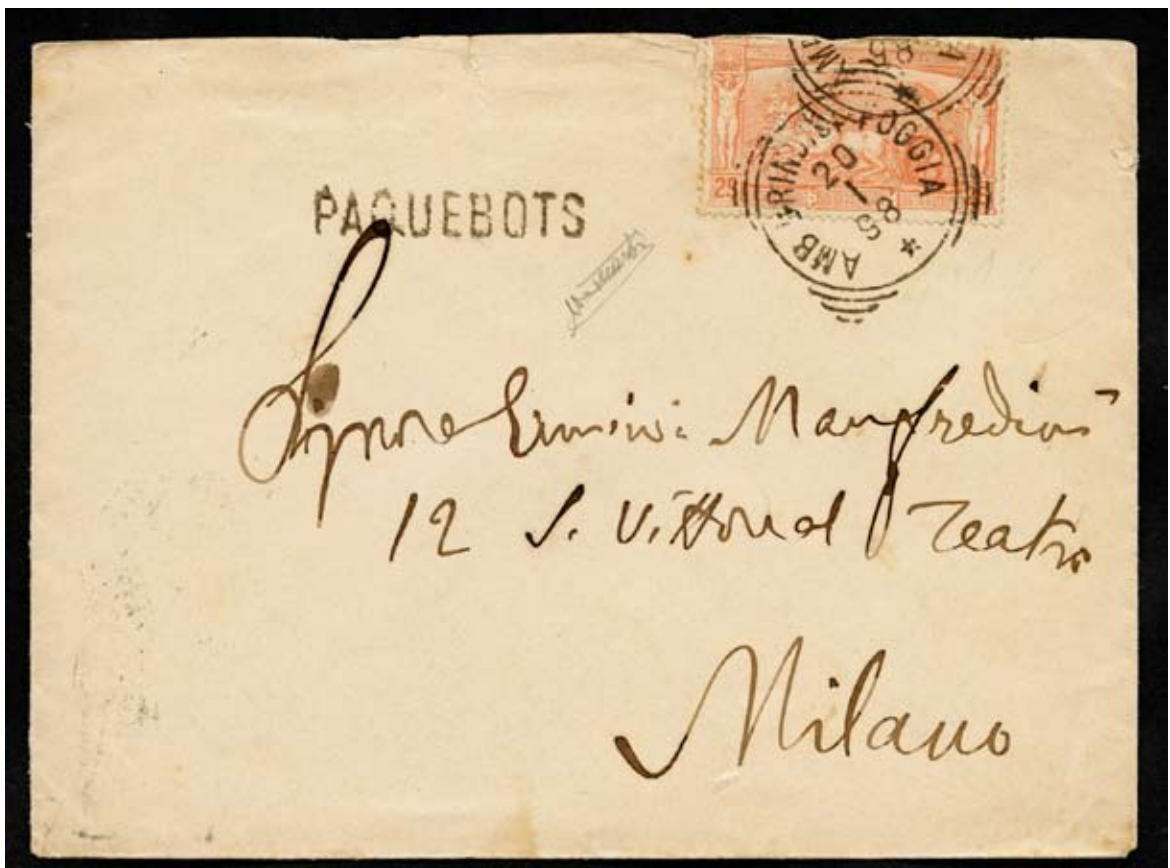 PAQUEBOTS
AMB BRINDISI FOGGIA
20
1
98
AMB
25
Signore Manfredini
12 S. Vittore al Teatro
Milano